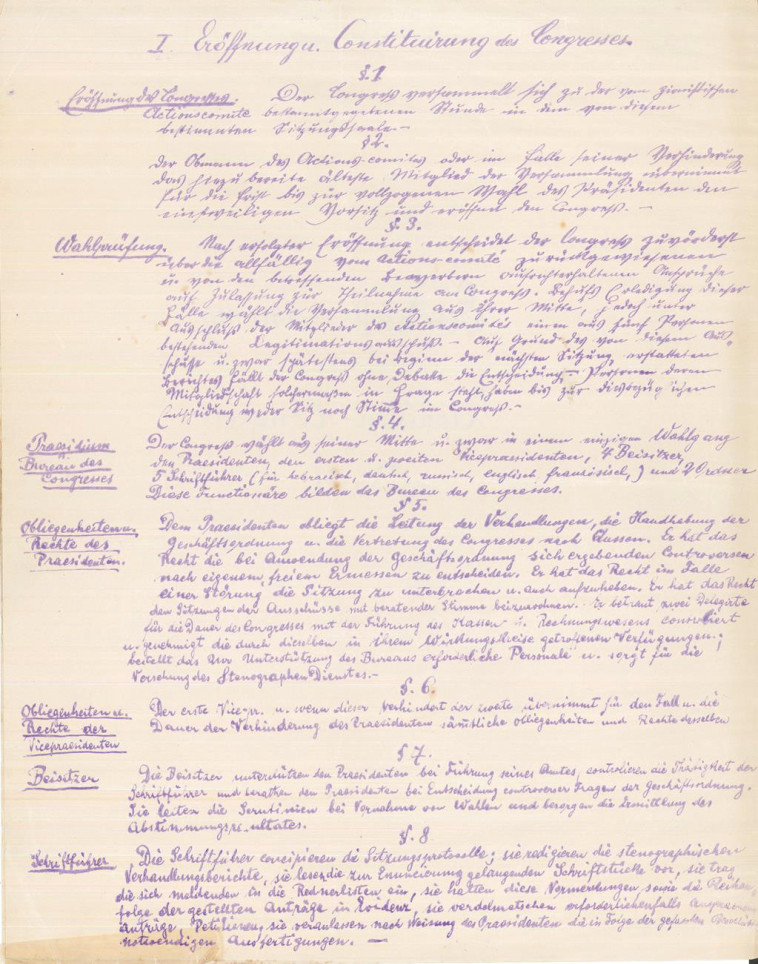 I. Eröffnung u. Constituirung des Congresses.
§.1
Eröffnung des Congresses. Der Congress versammelt sich zu der vom zionistischen
Actionscomité bekanntgegebenen Stunde in dem von diesem
bestimmten Sitzungssaale.—
§ 2.
Der Obmann des Actions-comités oder im Falle seiner Verhinderung
das hiezu bereite älteste Mitglied der Versammlung übernimmt
für die Frist bis zur vollzogenen Wahl des Präsidenten den
einstweiligen Vorsitz und eröffnet den Congress.—
§. 3.
Wahlprüfung. Nach erfolgter Eröffnung entscheidet der Congress zuvörderst
über die allfällig vom Actions-comité zurückgewiesenen
von den betreffenden aufrechterhaltenen Ansprüche
auf Zulassung zur Theilnahme am Congress. Behufs Erledigung dieser
Fälle wählt die Versammlung aus ihrer Mitte, jedoch unter
Ausschluß der Mitglieder des Actionskomités einen aus fünf Personen
bestehenden Legitimationsausschuß.— Auf Grund des von diesem Aus-
schusse u. zwar spätestens bei Beginn der nächsten Sitzung erstatteten
Berichtes fällt der Congress ohne Debatte die Entscheidung.— Personen deren
Mitgliedschaft solchermassen in Frage steht, haben bis zur diesbezüglichen
Entscheidung weder Sitz noch Stimme im Congress.—
§. 4.
Praesidium
u.
Bureau des
Congresses
Der Congreß wählt aus seiner Mitte u. zwar in einem einzigen Wahlgang
den Praesidenten, den ersten u. zweiten Vicepraesidenten, 4 Beisitzer,
5 Schriftführer (für hebräisch, deutsch, russisch, englisch französisch,) und 2 Ordner
Diese Functionäre bilden das Bureau des Congresses.
§ 5.
Obliegenheiten u.
Rechte des
Praesidenten.
Dem Praesidenten obliegt die Leitung der Verhandlungen, die Handhabung der
Geschäftsordnung u. die Vertretung des Congresses nach Aussen. Er hat das
Recht die bei Anwendung der Geschäftsordnung sich ergebenden Controversen
nach eigenem, freiem Ermessen zu entscheiden. Er hat das Recht im Falle
einer Störung die Sitzung zu unterbrechen u. auch aufzuheben. Er hat das Recht
den Sitzungen der Ausschüsse mit beratender Stimme beizuwohnen. Er betraut zwei Delegirte
für die Dauer des Congresses mit der Führung des Kassen- u. Rechnungswesens controliert
u. genehmigt die durch dieselben in ihrem Wirkungskreise getroffenen Verfügungen;
bestellt das zur Unterstützung des Bureaus erforderliche Personale u. sorgt für die
Versehung des Stenographen Dienstes.—
§. 6.
Obliegenheiten u.
Rechte der
Vicepraesidenten
Der erste Vice-pr. u. wenn dieser verhindert der zweite übernimmt für den Fall u. die
Dauer der Verhinderung des Praesidenten sämtliche Obliegenheiten und Rechte desselben
§ 7.
Beisitzer
Die Beisitzer unterstützen den Praesidenten bei Führung seines Amtes, controlieren die Thätigkeit der
Schriftführer und berathen den Praesidenten bei Entscheidung controverser Fragen der Geschäftsordnung.
Sie leiten die Scrutinien bei Vornahme von Wahlen und besorgen die Ermittlung des
Abstimmungsresultates.
§. 8
Schriftführer
Die Schriftführer concipieren die Sitzungsprotocolle; sie redigieren die stenographischen
Verhandlungsberichte, sie lesen die zur Enuncirung gelangenden Schriftstücke vor, sie trag
die sich meldenden in die Rednerlisten ein, sie halten diese Vormerkungen sowie die Reihen-
folge der gestellten Anträge in Evidenz, sie verdolmetschen erforderlichenfalls Ansprachen
Anträge, Petitionen, sie veranlassen nach Weisung des Praesidenten die in Folge der gefassten Beschlüsse
notwendigen Ausfertigungen.—